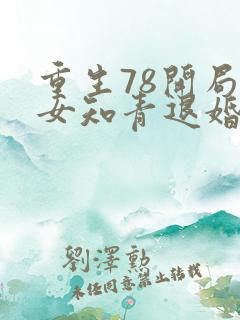 重生78開局
女知青退婚
劉澤勳
未经同意禁止转载